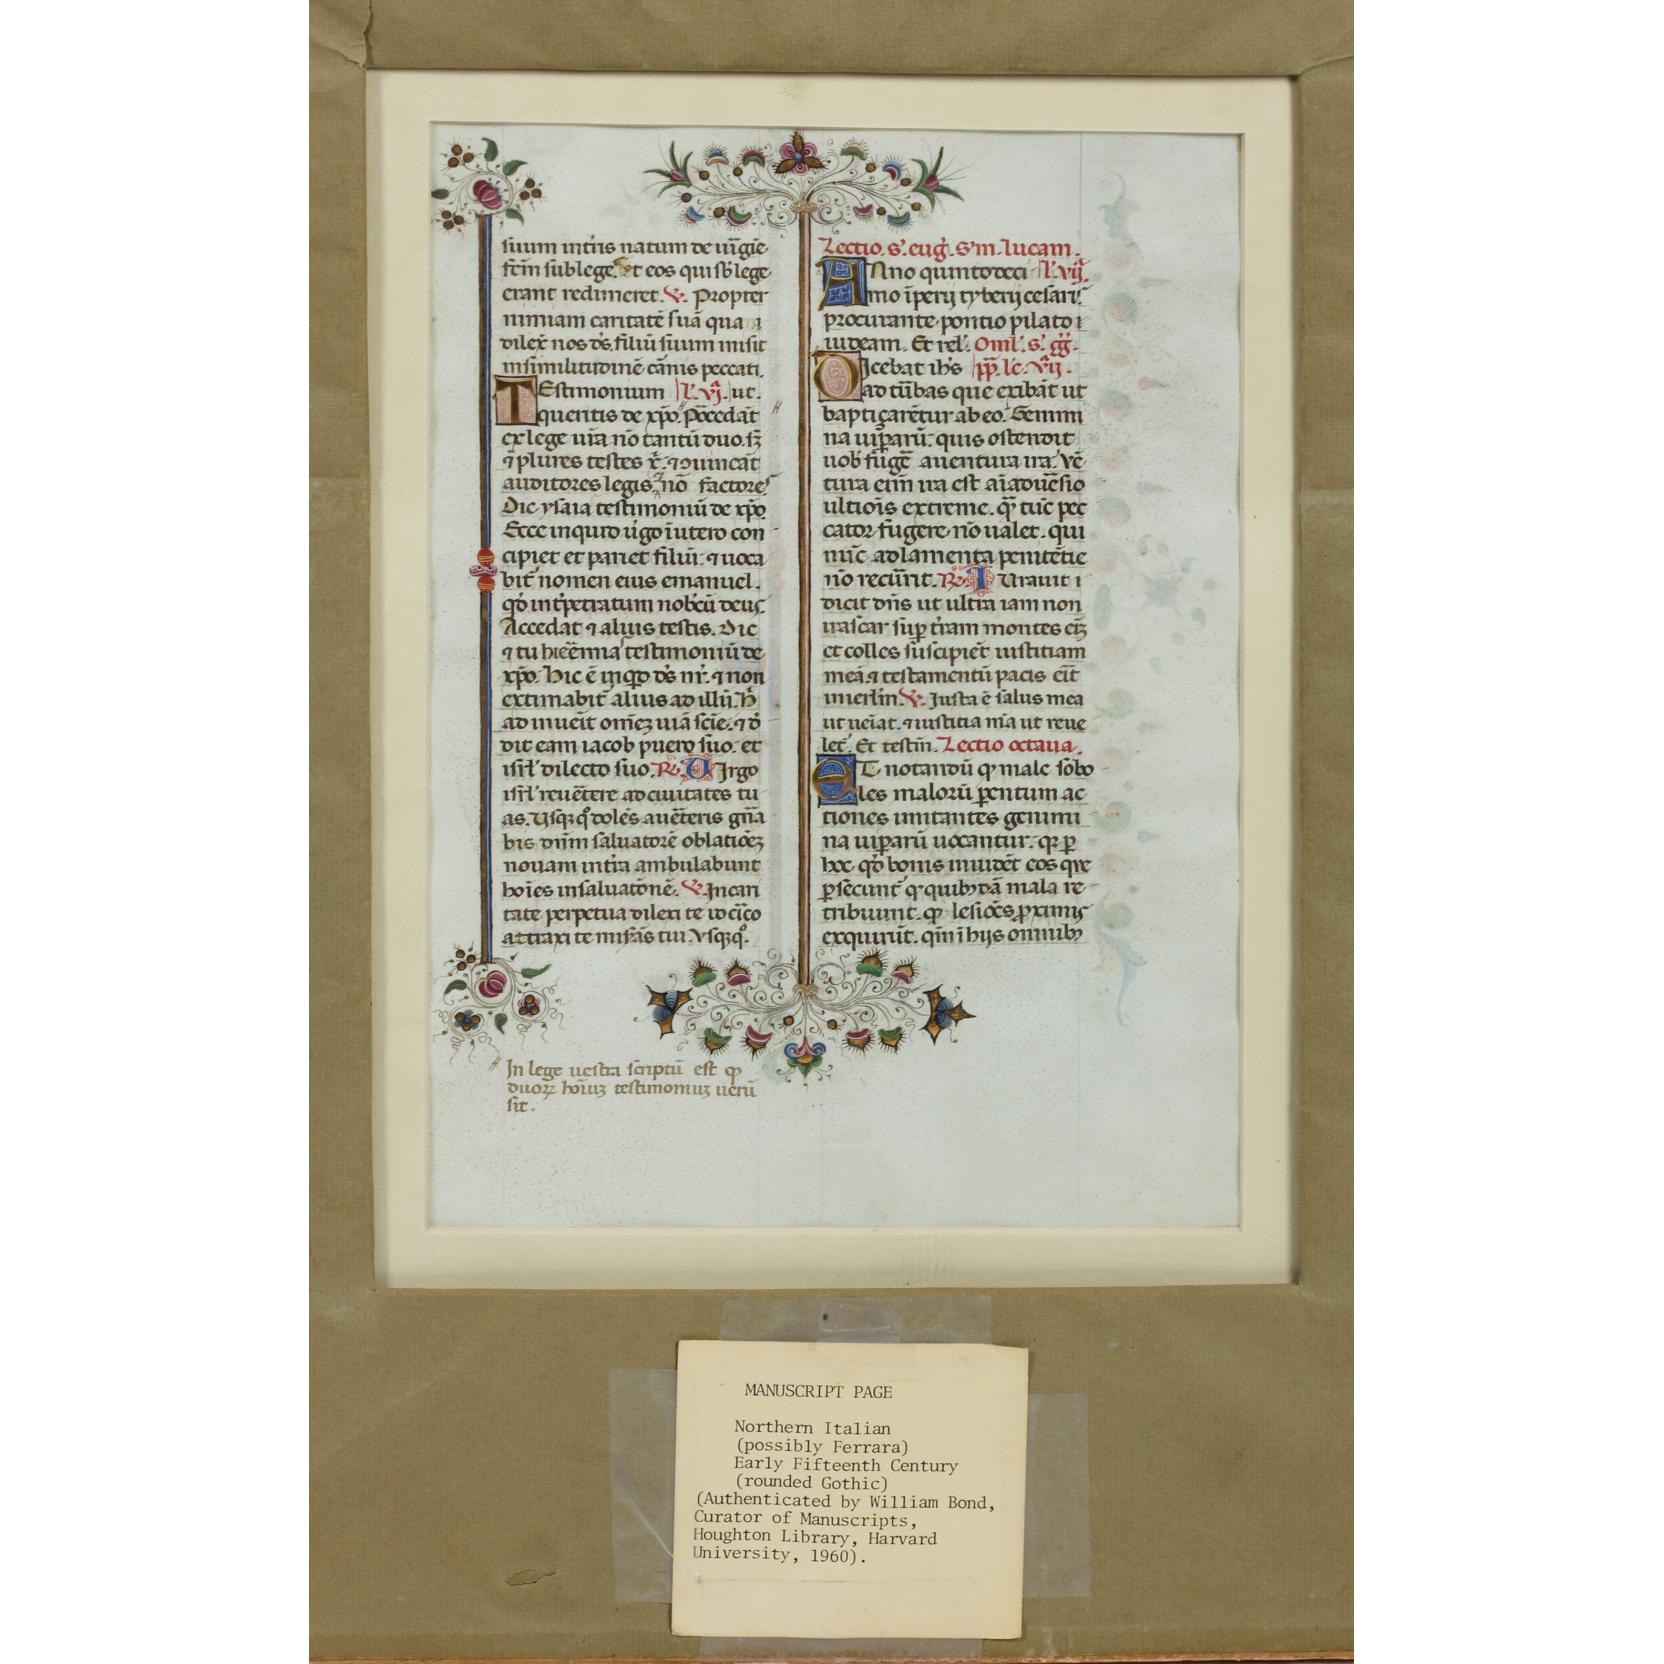 suum int̄ris natum de uirgīe
fc̄m sub lege. et eos qui sb̄ lege
erant redimeret. V. Propter
nimiam caritatē suā qua
dilex̄ nos ds̄. filiū suum misit
in similitudinē cārnis peccati.
TEstimonium l'. vj. ut.
queritis de xp̄o. Procedat
ex lege uīa nō tantū duo. sꝫ
⁊ plures testes ⁊ ꝯuincāt
auditores legis, nō factores
Dic ysaia testimoniū de xp̄o.
Ecce inquid uīgo ī utero con
cipiet et pariet filiū. ⁊ uoca
bit̄ nomen eius emanuel.
qd̄ int̄pretatum nob̄cū deus
Accedat ⁊ alius testis. Dic
⁊ tu hieremia testimoniū de
xp̄o. Hic ē inqd̄ ds̄ nr̄. ⁊ non
extimabit̄ alius ad illū. H̄
ad inuēit omēꝫ uiā scīe. ⁊ d̄
dit eam iacob puero suo. et
isrl' dilecto suo. R. Virgo
isrl' reuētere ad ciuitates tu
as. Vsqꝫ q̄ dolēs auēteris gn̄a
bis dn̄m saluatorē oblatiōeꝫ
nouam in tr̄a ambulabunt
hoīes in saluatōnē. V. In cari
tate perpetua dilexi te id cīco
attraxi te mis̄ās tui. Vsqꝫ q̄.
In lege uestra scriptū est qꝫ
duoꝝ homīuꝫ testimoniuꝫ uerū
sit.
Lectio. s'. euḡ. s'm. lucam.
ANno quintodeci l'. vij.
mo īperij tyberij cesaris
procurante pontio pilato i
iudeam. Et rel'. Omil'. s'. gḡ.
DIcebat ih̄s pp̄. le. vij.
ad tūbas que exibāt ut
baptiçarētur ab eo. Genimi
na uiꝑarū. quis ostendit
uob' fūgē a uentura ira. Vē
tura eim̄ ira est aīaduēsio
ultiōis extreme. qȝ tūc pec
cator fugere nō ualet. qui
nūc ad lamenta penitētie
nō recūrit. R. Iuraui
dicit dn̄s ut ultra iam non
irascar suꝑ t̄ram montes ēiꝫ
et colles suscipiēt iustitiam
meā. ⁊ testamentū pacis eīt
in ierl̄m. V. Iusta ē salus mea
ut uēiat. ⁊ iustitia mīa ut reue
let̄. Et testm̄. Lectio octaua.
ET notandū qꝫ male sobo
les malorū ꝑentum ac
tiones imitantes genimi
na uiꝑarū uocantur. qꝛ ꝑ
hoc qd̄ bonis inuidēt eos qꝫ
ꝑsecunt̄ qꝫ quibꝫdā mala re
tribuunt. qꝫ lesiōēs ꝓximis
exquirūt. qm̄ ī hijs omnibꝫ
MANUSCRIPT PAGE
Northern Italian
(possibly Ferrara)
Early Fifteenth Century
(rounded Gothic)
(Authenticated by William Bond,
Curator of Manuscripts,
Houghton Library, Harvard
University, 1960).